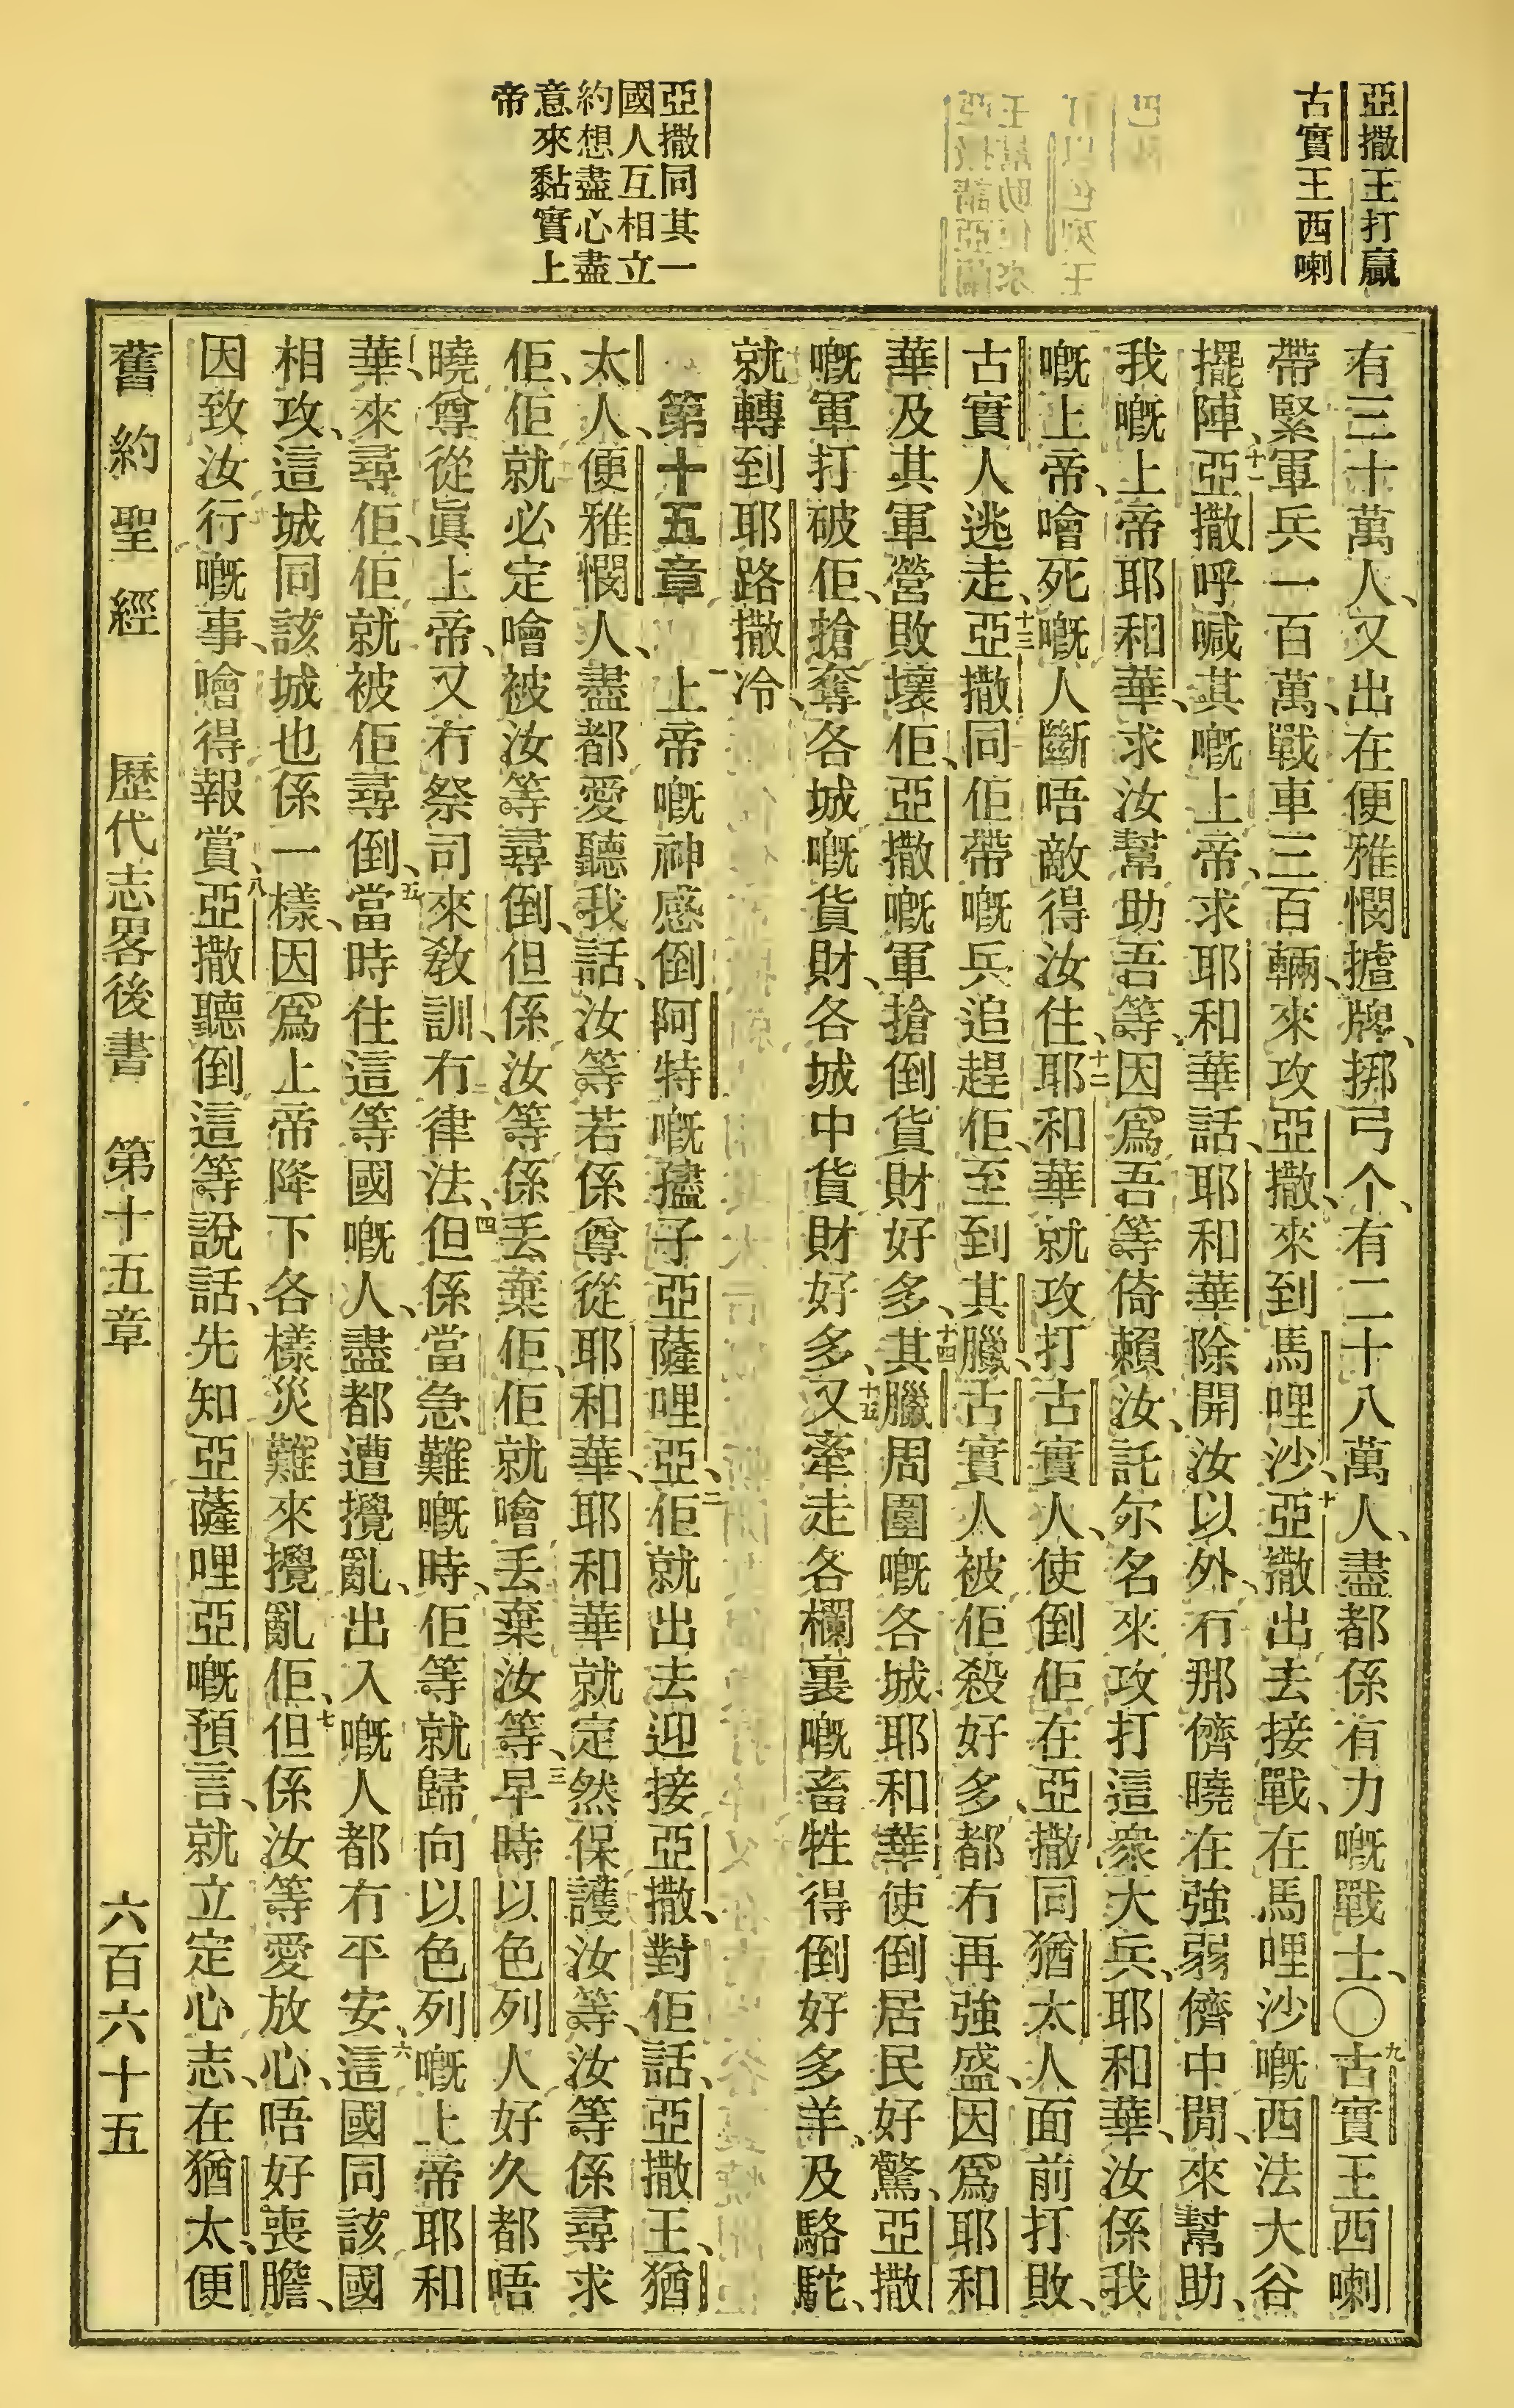 亞撒王打贏
古實王西喇
亞撒同其一
國人互相立
約想盡心盡
意來黏實上
帝
有三十萬人、又出在便雅憫㨿牌、挷弓个、有二十八萬人、盡都係有力嘅戰士、〇九古實王西喇
帶緊軍兵一百萬、戰車三百輛、來攻亞撒、來到馬哩沙、十亞撒出去接戰、在馬哩沙嘅西法大谷
擺陣、十一亞撒呼喊其嘅上帝、求耶和華話、耶和華除開汝以外、冇那儕曉在強弱儕中間、來幫助、
我嘅上帝耶和華、求汝幫助吾等、因爲吾等倚賴汝、託尔名來攻打這衆大兵、耶和華、汝係我
嘅上帝、噲死嘅人斷唔敵得汝住、十二耶和華就攻打古實人、使倒佢在亞撒同猶太人面前打敗、
古實人逃走、十三亞撒同佢帶嘅兵追趕佢、至到其臘、古實人被佢殺好多、都冇再強盛、因爲耶和
華及其軍營敗壞佢、亞撒嘅軍搶倒貨財好多、十四其臘周圍嘅各城、耶和華使倒居民好驚、亞撒
嘅軍打破佢、搶奪各城嘅貨財、各城中貨財好多、十五又牽走各欄裏嘅畜牲、得倒好多羊、及駱駝、
就轉到耶路撒冷、
第十五章 一上帝嘅神感倒阿特嘅𤢹子亞薩哩亞、二佢就出去迎接亞撒、對佢話、亞撒王、猶
太人、便雅憫人、盡都愛聽我話、汝等若係尊從耶和華、耶和華就定然保護汝等、汝等係尋求
佢、佢就必定噲被汝等尋倒、但係汝等係丟棄佢、佢就噲丟棄汝等、三早時以色列人好久都唔
曉尊從眞上帝、又冇祭司來敎訓、冇律法、四但係當急難嘅時、佢等就歸向以色列嘅上帝耶和
華、來尋佢、佢就被佢尋倒、五當時住這等國嘅人、盡都遭攪亂、出入嘅人都冇平安、六這國同該國
相攻、這城同該城也係一樣、因爲上帝降下各樣災難來攪亂佢、七但係汝等愛放心、唔好喪膽、
因致汝行嘅事、噲得報賞、八亞撒聽倒這等說話、先知亞薩哩亞嘅預言、就立定心志、在猶太、便
舊約聖經 歷代志畧後書 第十五章 六百六十五